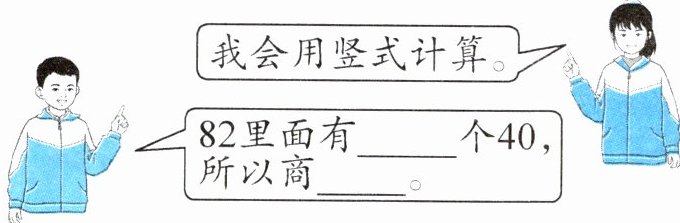 我会用竖式计算。
82里面有______个40，
所以商______。